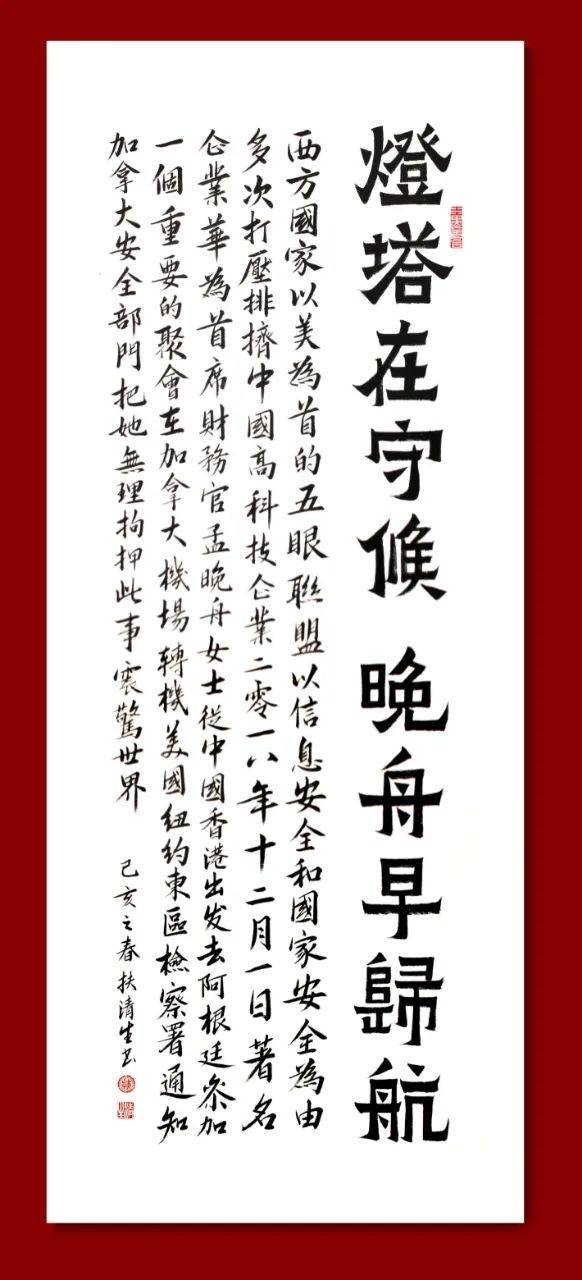 燈塔在守候 晚舟早歸航
西方國家以美為首的五眼聯盟以信息安全和國家安全為由
多次打壓排擠中國高科技企業二零一八年十二月一日著名
企業華為首席財務官孟晚舟女士從中國香港出发去阿根廷參加
一個重要的聚會在加拿大機場轉機美國紐約東區檢察署通知
加拿大安全部門把她無理拘押此事震驚世界 己亥之春扶清生书